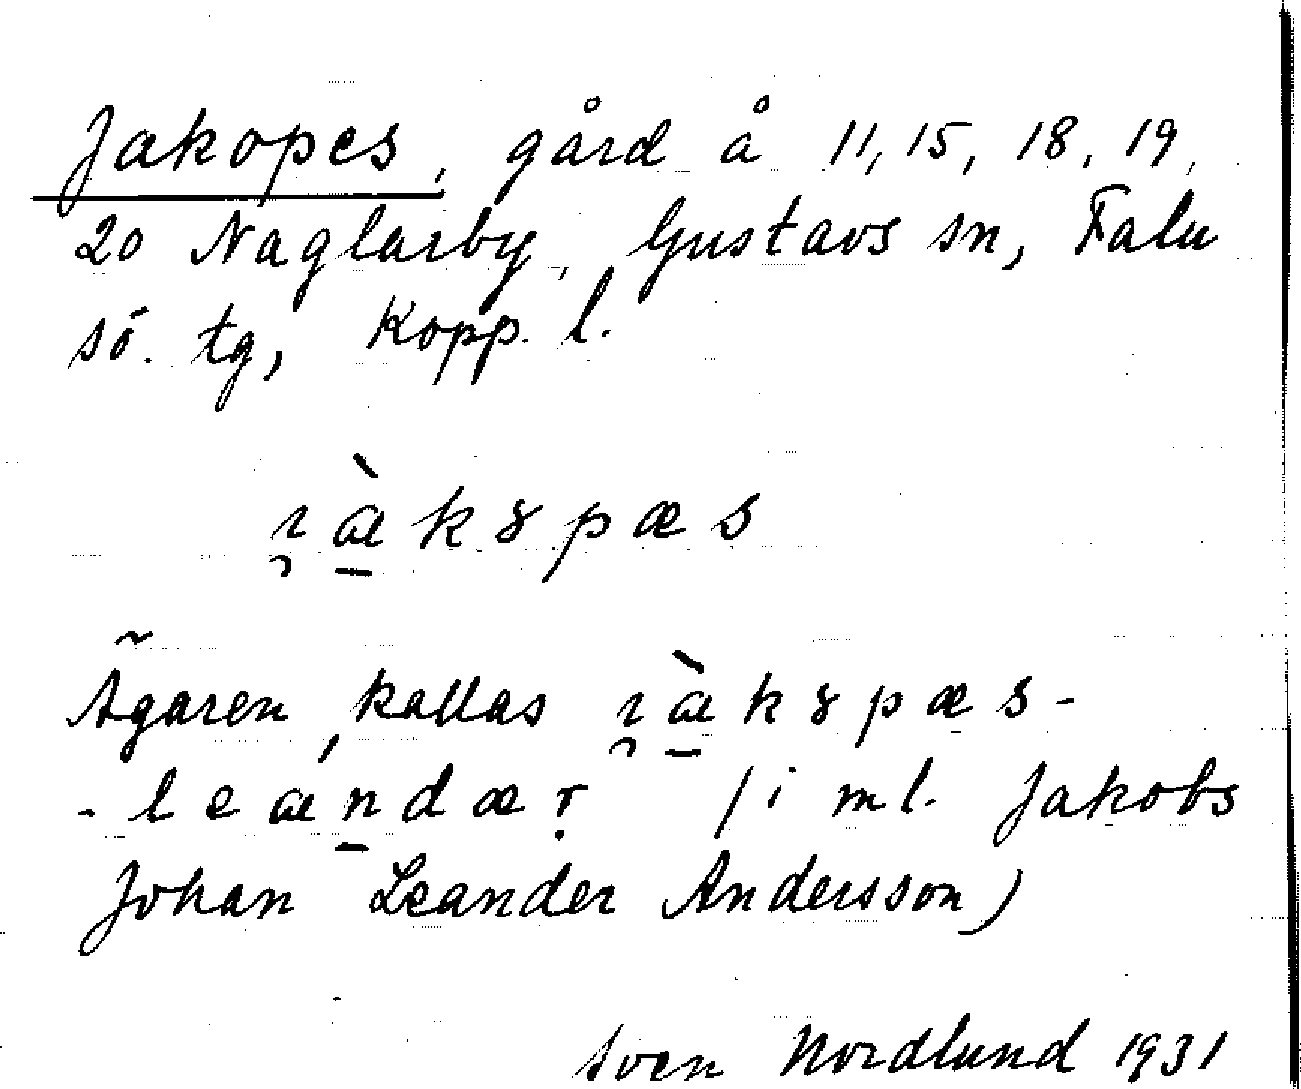 Jakopes, gård å 11, 15, 18, 19,
20 Naglarby, Gustavs sn, Falu
sö. tg, Kopp. l.
ɿ̯àkȣpæs
Ägaren kallas ɿ̯àkȣpæs-
-leandær (i ml. Jakobs
Johan Leander Andersson)
Sven Nordlund 1931